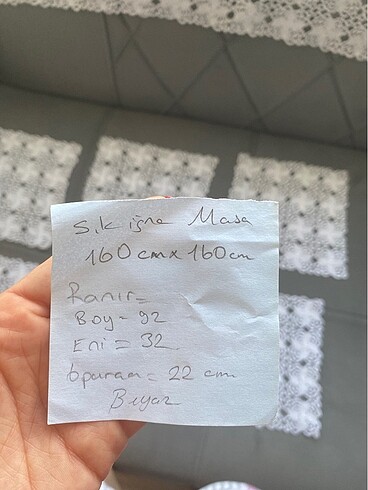 Sık iğne Masa
160cmx160cm
Ranır=
Boy=92
Eni=32
6 paraa=22 cm
Beyaz